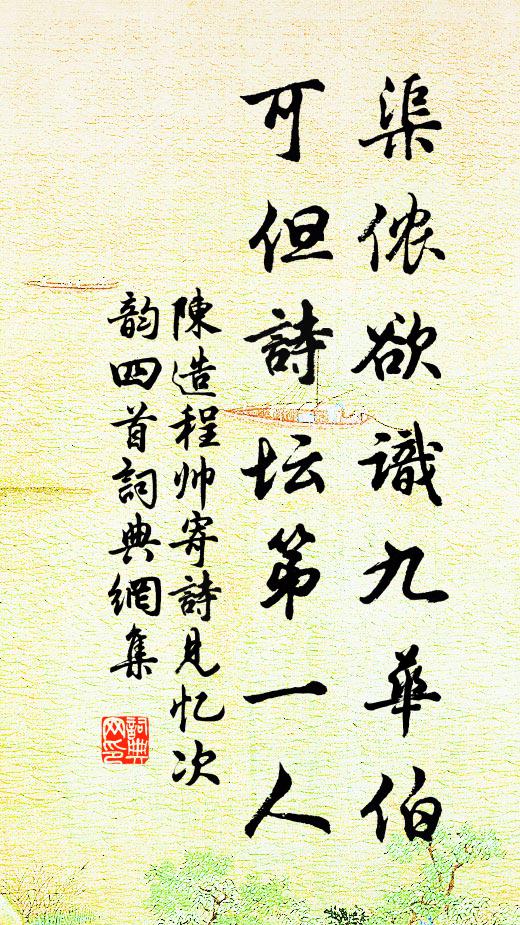 渠侬欲識九華伯
可但詩坛第一人
陳造程帅寄詩見忆次
韵四首詞典網集
詞典
网印